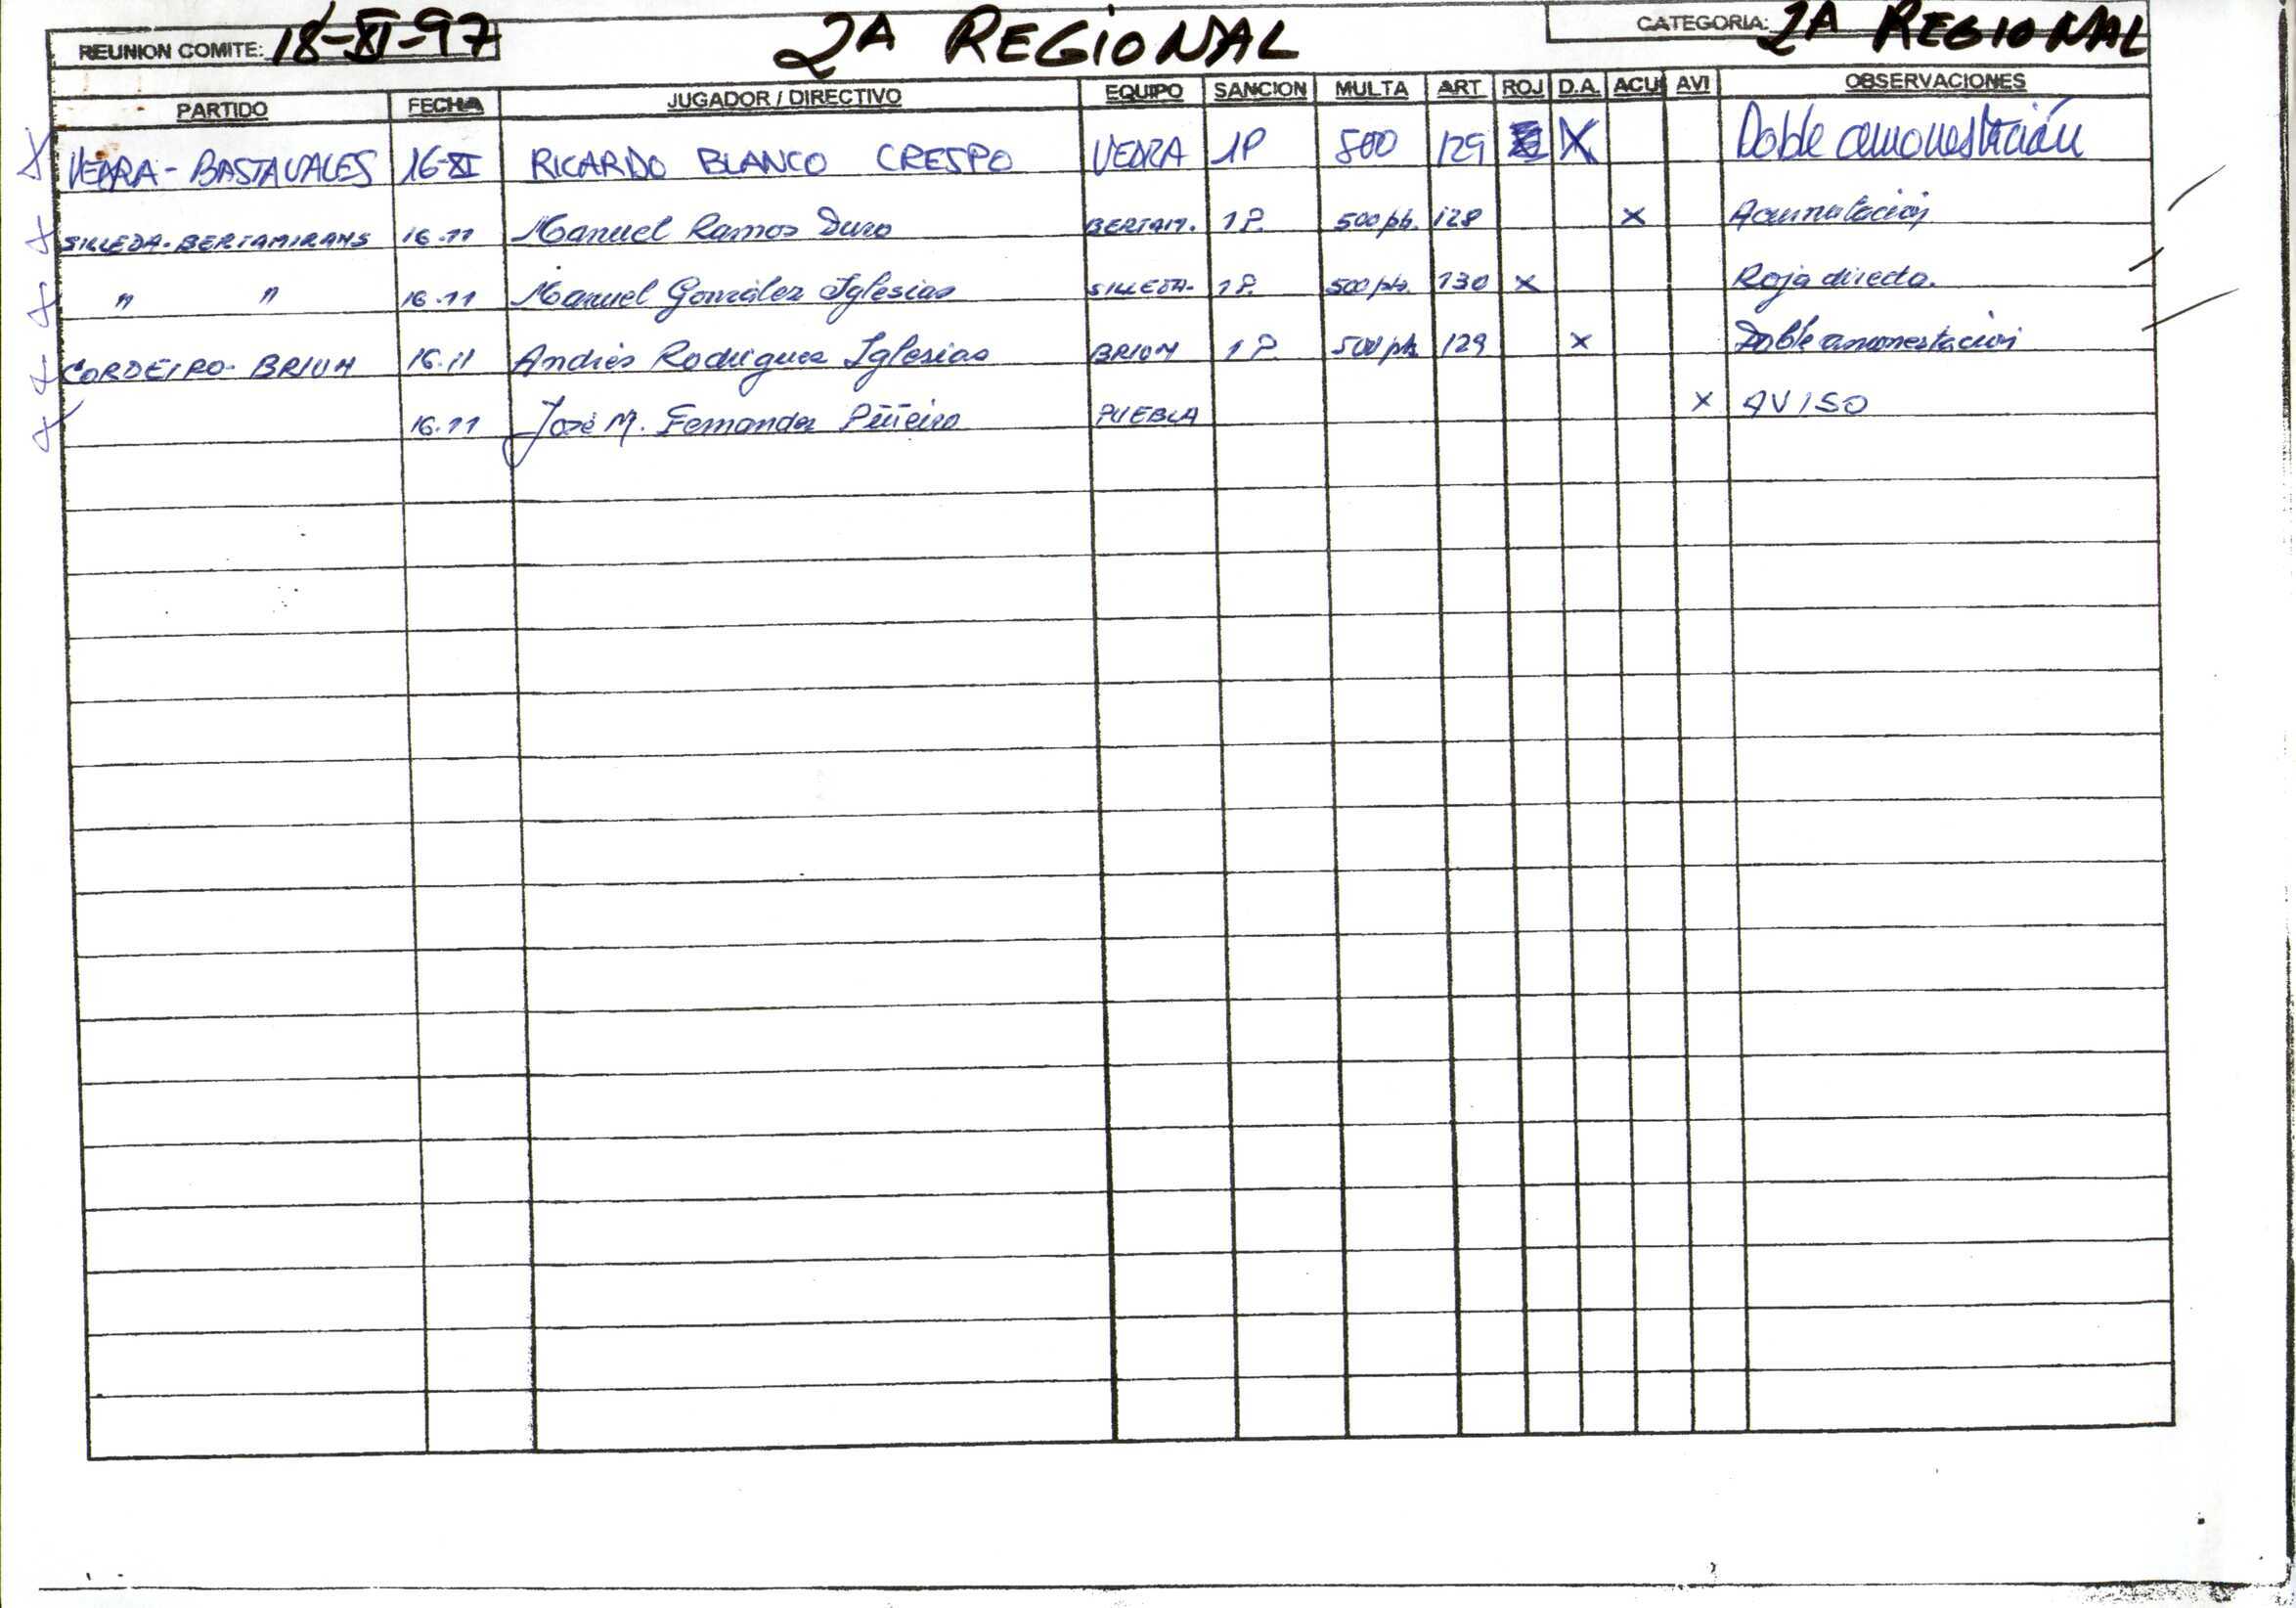 REUNION COMITE: 18-XI-97 2A REGIONAL CATEGORIA: 2A REGIONAL
PARTIDO FECHA JUGADOR / DIRECTIVO EQUIPO SANCION MULTA ART ROJ D.A. ACU AVI OBSERVACIONES
VEDRA - BASTAVALES 16-XI RICARDO BLANCO CRESPO VEDRA 1P 500 129 X Doble amonestación
SILLEDA-BERTAMIRANS 16-11 Manuel Ramos Duro BERTAM. 1P. 500 pts. 128 x Acumulación
" " 16-11 Manuel González Iglesias SILLEDA- 1P. 500 pts. 130 x Roja directa.
CORDEIRO- BRION 16-11 Andrés Rodriguez Iglesias BRION 1P. 500 pts 129 x Doble amonestación
16-11 José M. Fernandez Piñeiro PUEBLA x AVISO